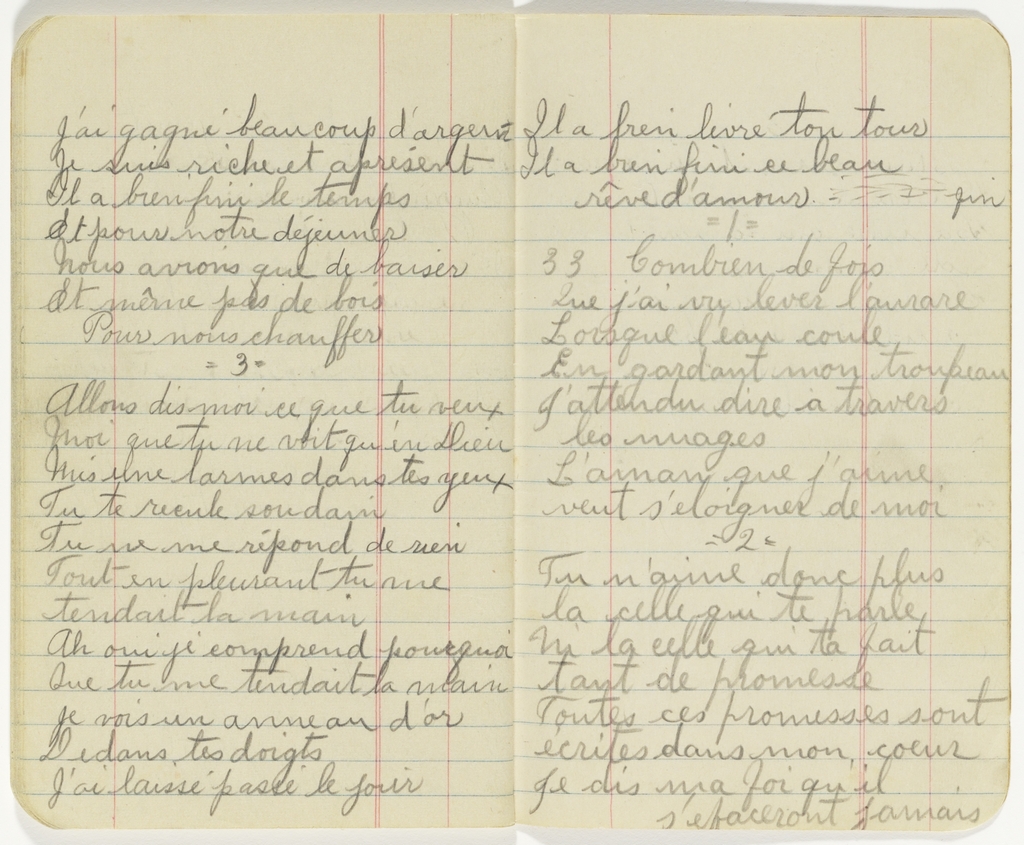 J'ai gagné beaucoup d'argent
Je suis riche et aprésent
Il a bien fini le temps
Et pour notre déjeuner
Nous avions que de baiser
Et même pas de bois
Pour nous chauffer
= 3 =
Allons dis moi ce que tu veux
Moi que tu ne voit qu'en Dieu
Mis une larmes dans tes yeux
Tu te recule soudain
Tu ne me répond de rien
Tout en pleurant tu me
tendait la main
Ah oui je comprend pourquoi
Que tu me tendait la main
Je vois un anneau d'or
Dedans tes doigts
J'ai laissé passé le jour
Il a fren livre ton tour
Il a bien fini ce beau
rêve d'amour. fin
= 1 =
33 Combien de fois
Que j'ai vu lever l'aurare
Lorsque l'eau coule
En gardant mon troupeau
J'attendu dire à travers
les nuages
L'aman que j'aime
veut s'éloigner de moi
= 2 =
Tu n'aime donc plus
la celle qui te parle
Ni la celle qui ta fait
tant de promesse
Toutes ces promesses sont
écrites dans mon coeur
Je dis ma foi qu'il
s'éfaceront jamais